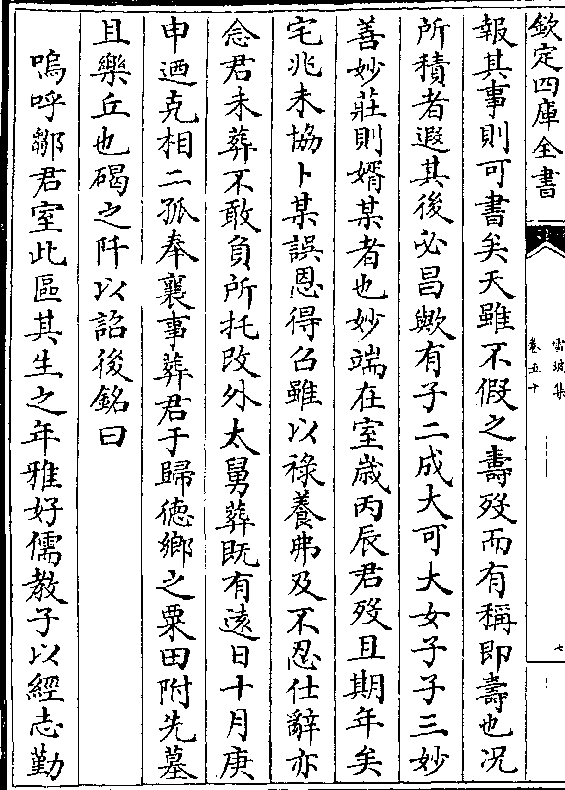 欽定四庫全書
雪坡集
卷五十
七
報其事則可書矣天雖不假之壽歿而有稱即壽也况
所積者遐其後必昌歟有子二成大可大女子子三妙
善妙莊則婿某者也妙端在室歳丙辰君歿且期年矣
宅兆未協卜某誤恩得召雖以祿養弗及不忍仕辭亦
念君未葬不敢負所托改外太舅葬既有逺日十月庚
申迺克相二孤奉襄事葬君于歸德鄉之粟田附先墓
且樂丘也碣之阡以詔後銘曰
嗚呼鄒君室此區其生之年雅好儒教子以經志勤